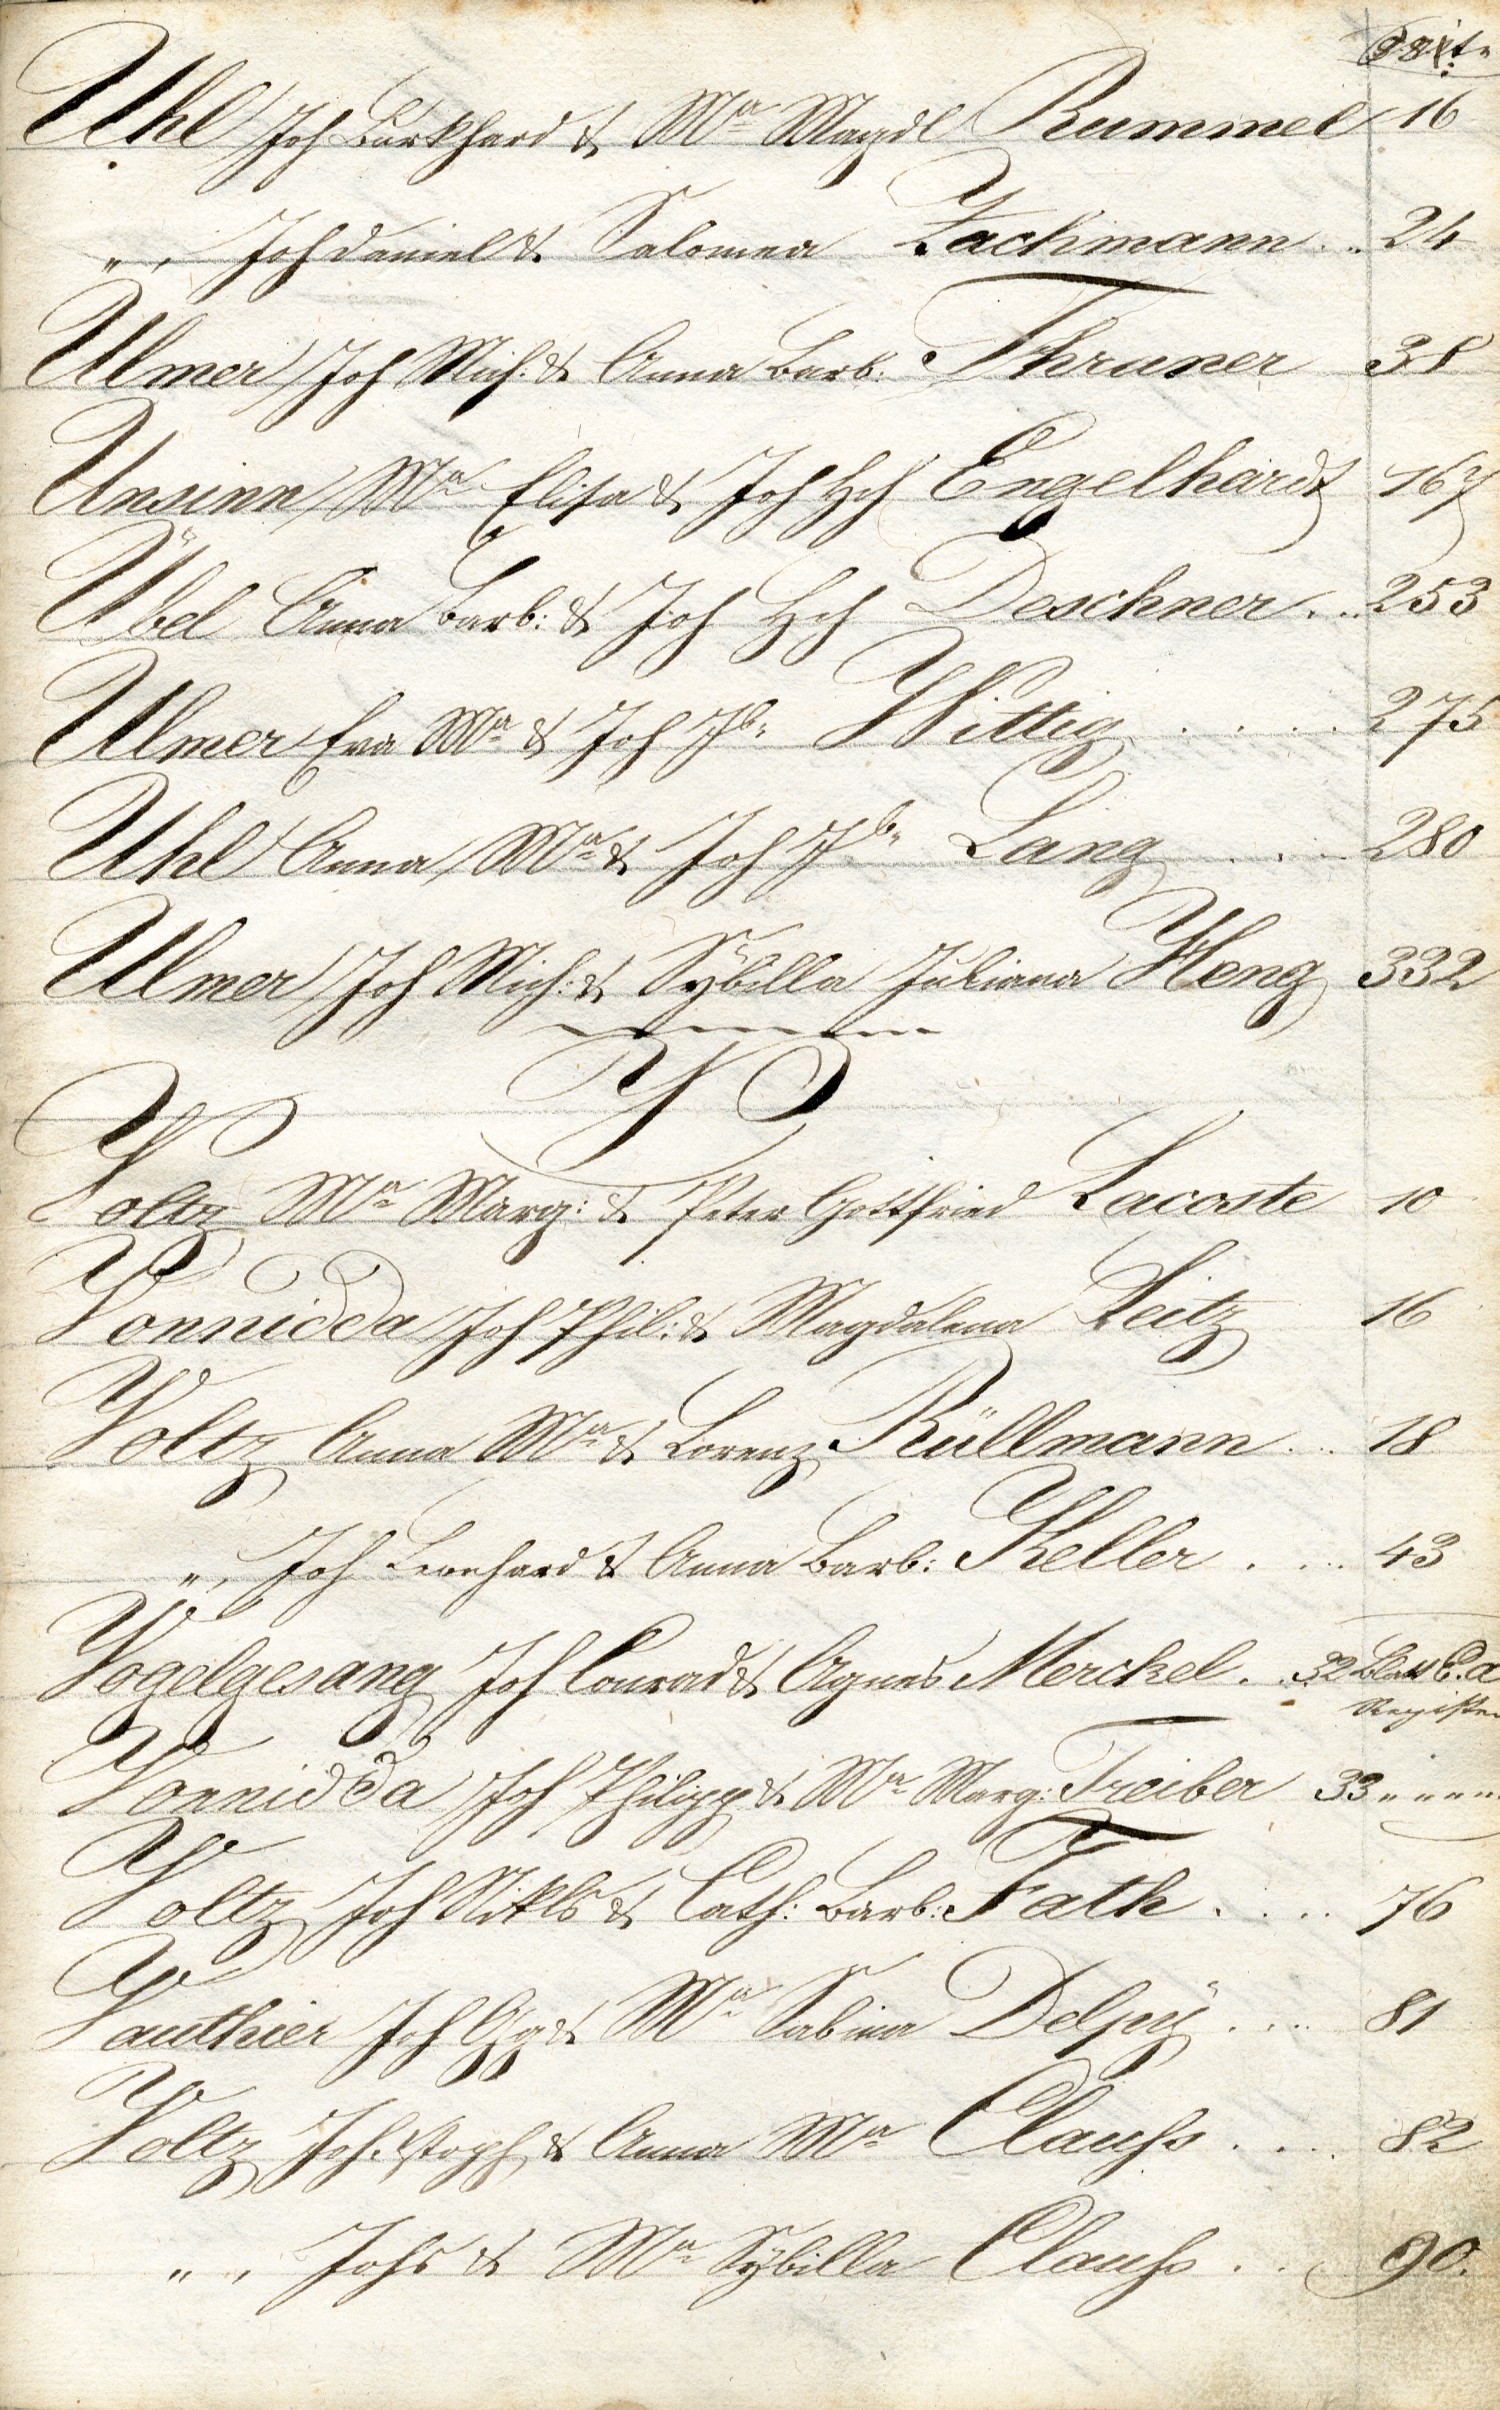 Seite
Uhl Joh Burkhard & Mᵃ Magdl Rummel 16
" , Joh Daniel & Salomea Lachmann .. 24
Ulmer Joh Mich: & Anna Barb: Thruner 38
Unsinn Mᵃ Elisa & Joh Hch Engelhardt 167
Übel Anna Barb: & Joh Hch Deschner ... 253
Ulmer Eva Mᵃ & Joh Jb: Wittig ..... 275
Uhl Anna Mᵃ & Joh Jb: Lang ... 280
Ulmer Joh Mich: & Sÿbilla Juliana Heng 332
V
Voltz Mᵃ Marg: & Peter Gottfried Lacoste 10
Vonnidda Joh Phil: & Magdalena Leitz 16
Voltz Anna Mᵃ & Lorenz Rüllmann ... 18
" , Joh Leonhard & Anna Barb: Keller .... 43
Vogelgesang Joh Conrad & Agnes Merckel . . 32 Blatt C. a
Register
Vonnidda Joh Philipp & Mᵃ Marg: Treiber 33 " " " "
Voltz Joh Nikls & Cath: Barb: Fath .... 76
Vauthier Joh Gg & Mᵃ Sabina Delpÿ .... 81
Voltz Joh. Stoph & Anna Mᵃ Clauß .... 82
" , Johs & Mᵃ Sÿbilla Clauß .. 90.